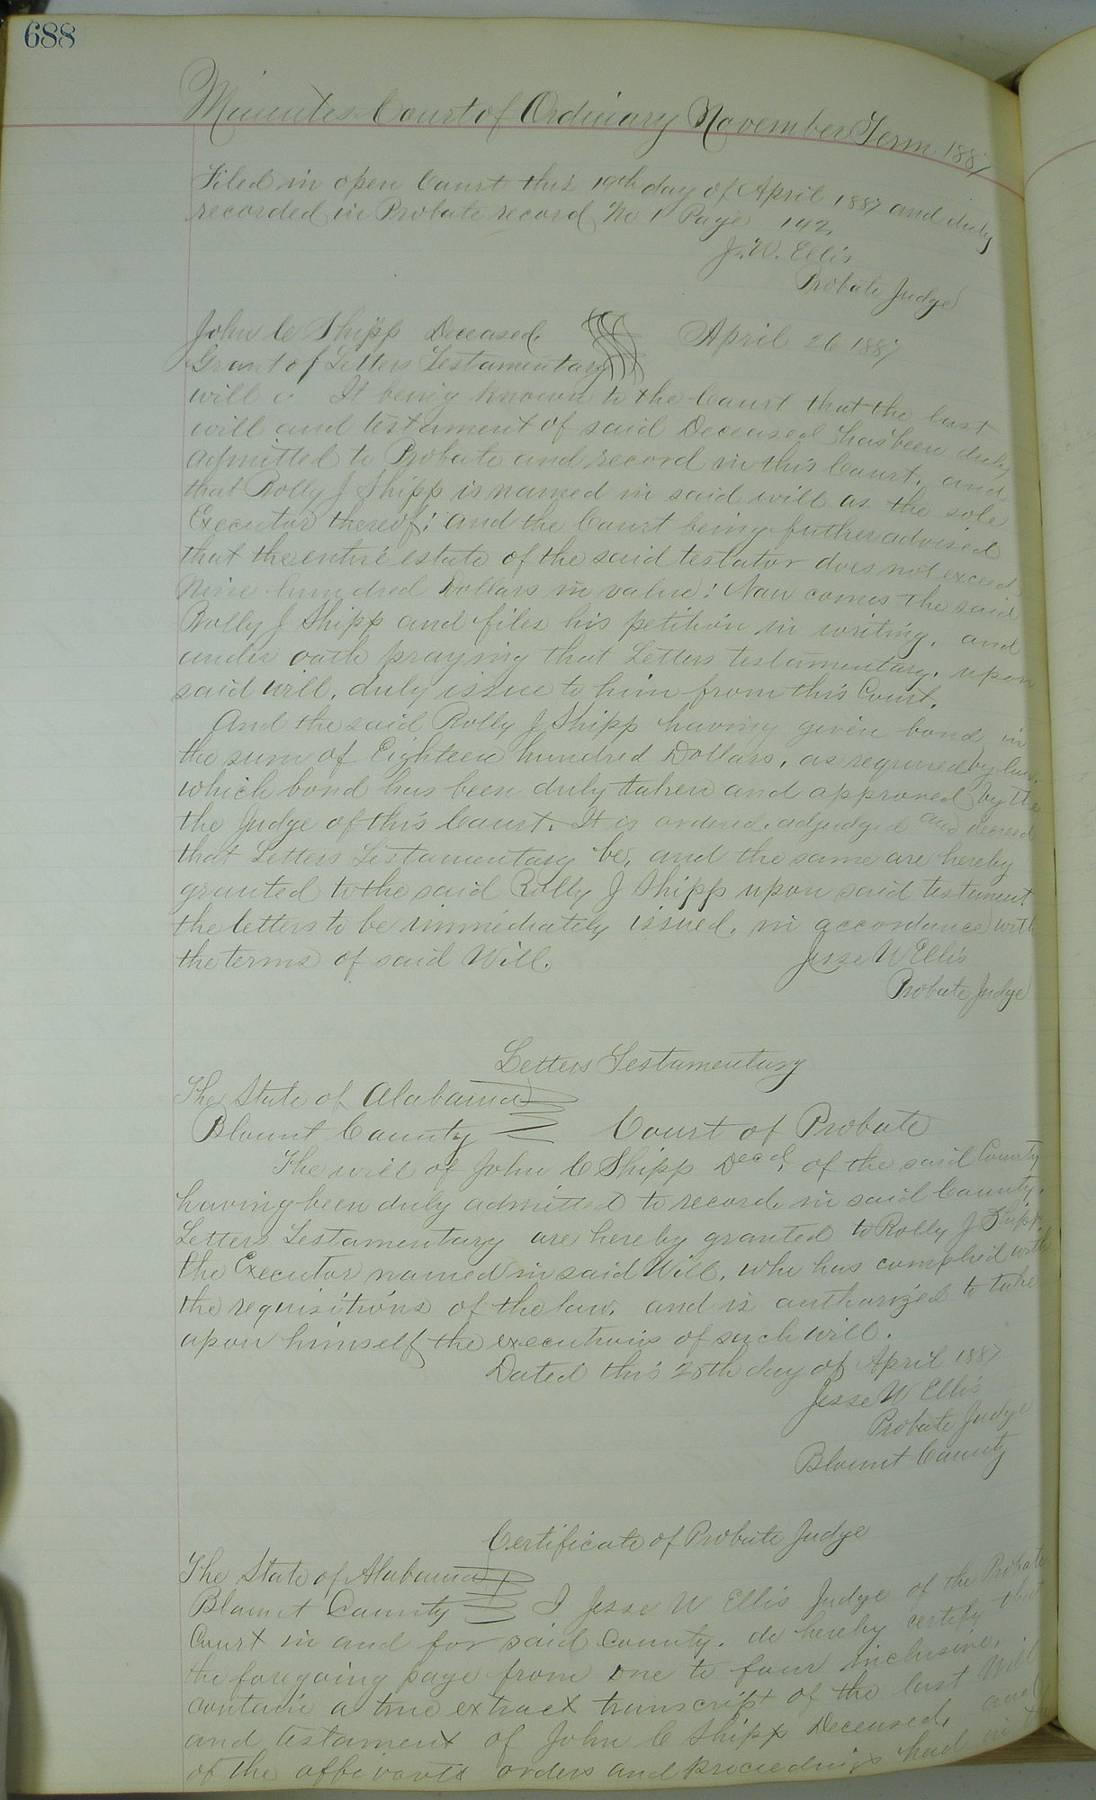 688
Minutes Court of Ordinary November Term 1887
Filed in open Court this 19th day of April 1887 and duly
recorded in Probate record No 1 Page 142.
J. W. Ellis
Probate Judge
John C Shipp Deceased. April 26 1887
Grant of Letters Testamentary
will &c It being known to the Court that the last
will and testament of said Deceased has been duly
admitted to Probate and record in this Court. and
that Rolly J Shipp is named in said will as the sole
Executor thereof; and the Court being futher advised
that the entire estate of the said testator does not exceed
Nine hundred Dollars in value; Now comes the said
Rolly J Shipp and files his petition in writing. and
under oath praying that Letters testamentary. upon
said will. duly issue to him from this Court.
And the said Rolly J Shipp having given bond in
the sum of Eighteen hundred Dollars, as required by law.
which bond has been duly taken and approved by the
the Judge of this Court. It is ordered. adjudged and decreed
that Letters Testamentary be, and the same are hereby
granted to the said Rolly J Shipp upon said testament
the letters to be immediately issued, in accordance with
the terms of said Will. Jesse W Ellis
Probate Judge
Letters Testamentary
The State of Alabama
Blount County Court of Probate
The will of John C Shipp Decd, of the said County
having been duly admitted to record in said County.
Letters Testamentary are hereby granted to Rolly J Shipp.
the Executor named in said Will. who has complied with
the requisitions of the law. and is authorized to take
upon himself the executions of such will.
Dated this 26th day of April 1887
Jesse W Ellis
Probate Judge
Blount County
Certificate of Probate Judge
The State of Alabama
Blount County I Jesse W Ellis Judge of the Probate
Court in and for said County. do hereby certify that
the foregoing page from one to four inclusive.
contain a true extract transcript of the last Will
and testament of John C Shipp Deceased, and
of the orders and proceedings had in